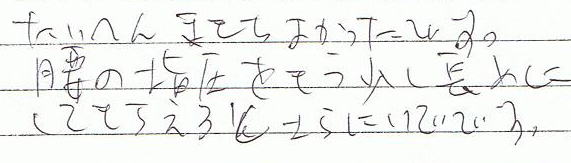 たいへん きもちよかったです。
腰の指圧をもう少し長めに
してもらえるとさらにいいです。